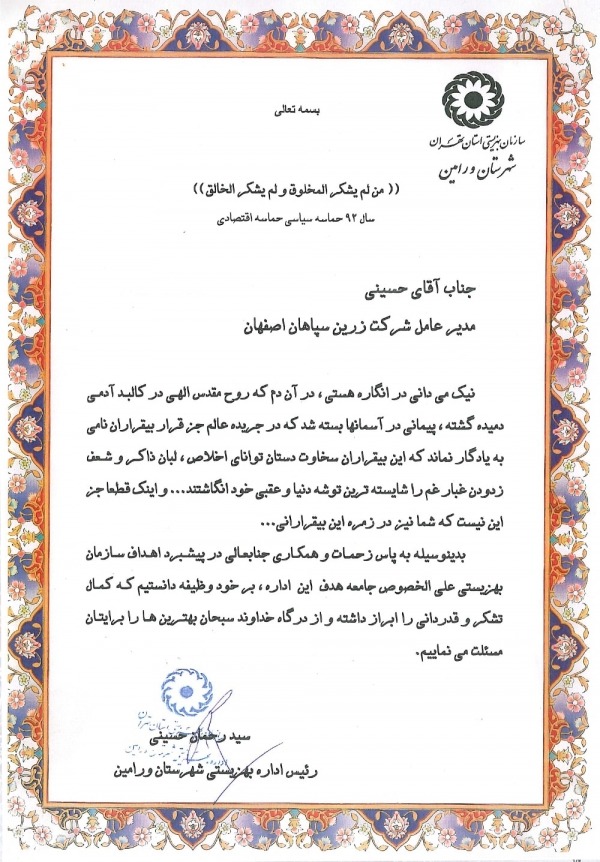 بسمه تعالی
سازمان بهزیستی استان تهران
شهرستان ورامین
(( من لم یشکر المخلوق و لم یشکر الخالق ))
سال ۹۲ حماسه سیاسی حماسه اقتصادی
جناب آقای حسینی
مدیر عامل شرکت زرین سپاهان اصفهان
نیک می دانی در انگاره هستی ، در آن دم که روح مقدس الهی در کالبد آدمی
دمیده گشته ، پیمانی در آسمانها بسته شد که در جریده عالم جز قرار بیقراران نامی
به یادگار نماند که این بیقراران سخاوت دستان توانای اخلاص ، لبان ذاکر و شعف
زدودن غبار غم را شایسته ترین توشه دنیا و عقبی خود انگاشتند... و اینک قطعا جز
این نیست که شما نیز در زمره این بیقرارانی...
بدینوسیله به پاس زحمات و همکاری جنابعالی در پیشبرد اهداف سازمان
بهزیستی علی الخصوص جامعه هدف این اداره ، بر خود وظیفه دانستیم که کمال
تشکر و قدردانی را ابراز داشته و از درگاه خداوند سبحان بهترین ها را برایتان
مسئلت می نماییم.
سید رحمان حسینی
رئیس اداره بهزیستی شهرستان ورامین